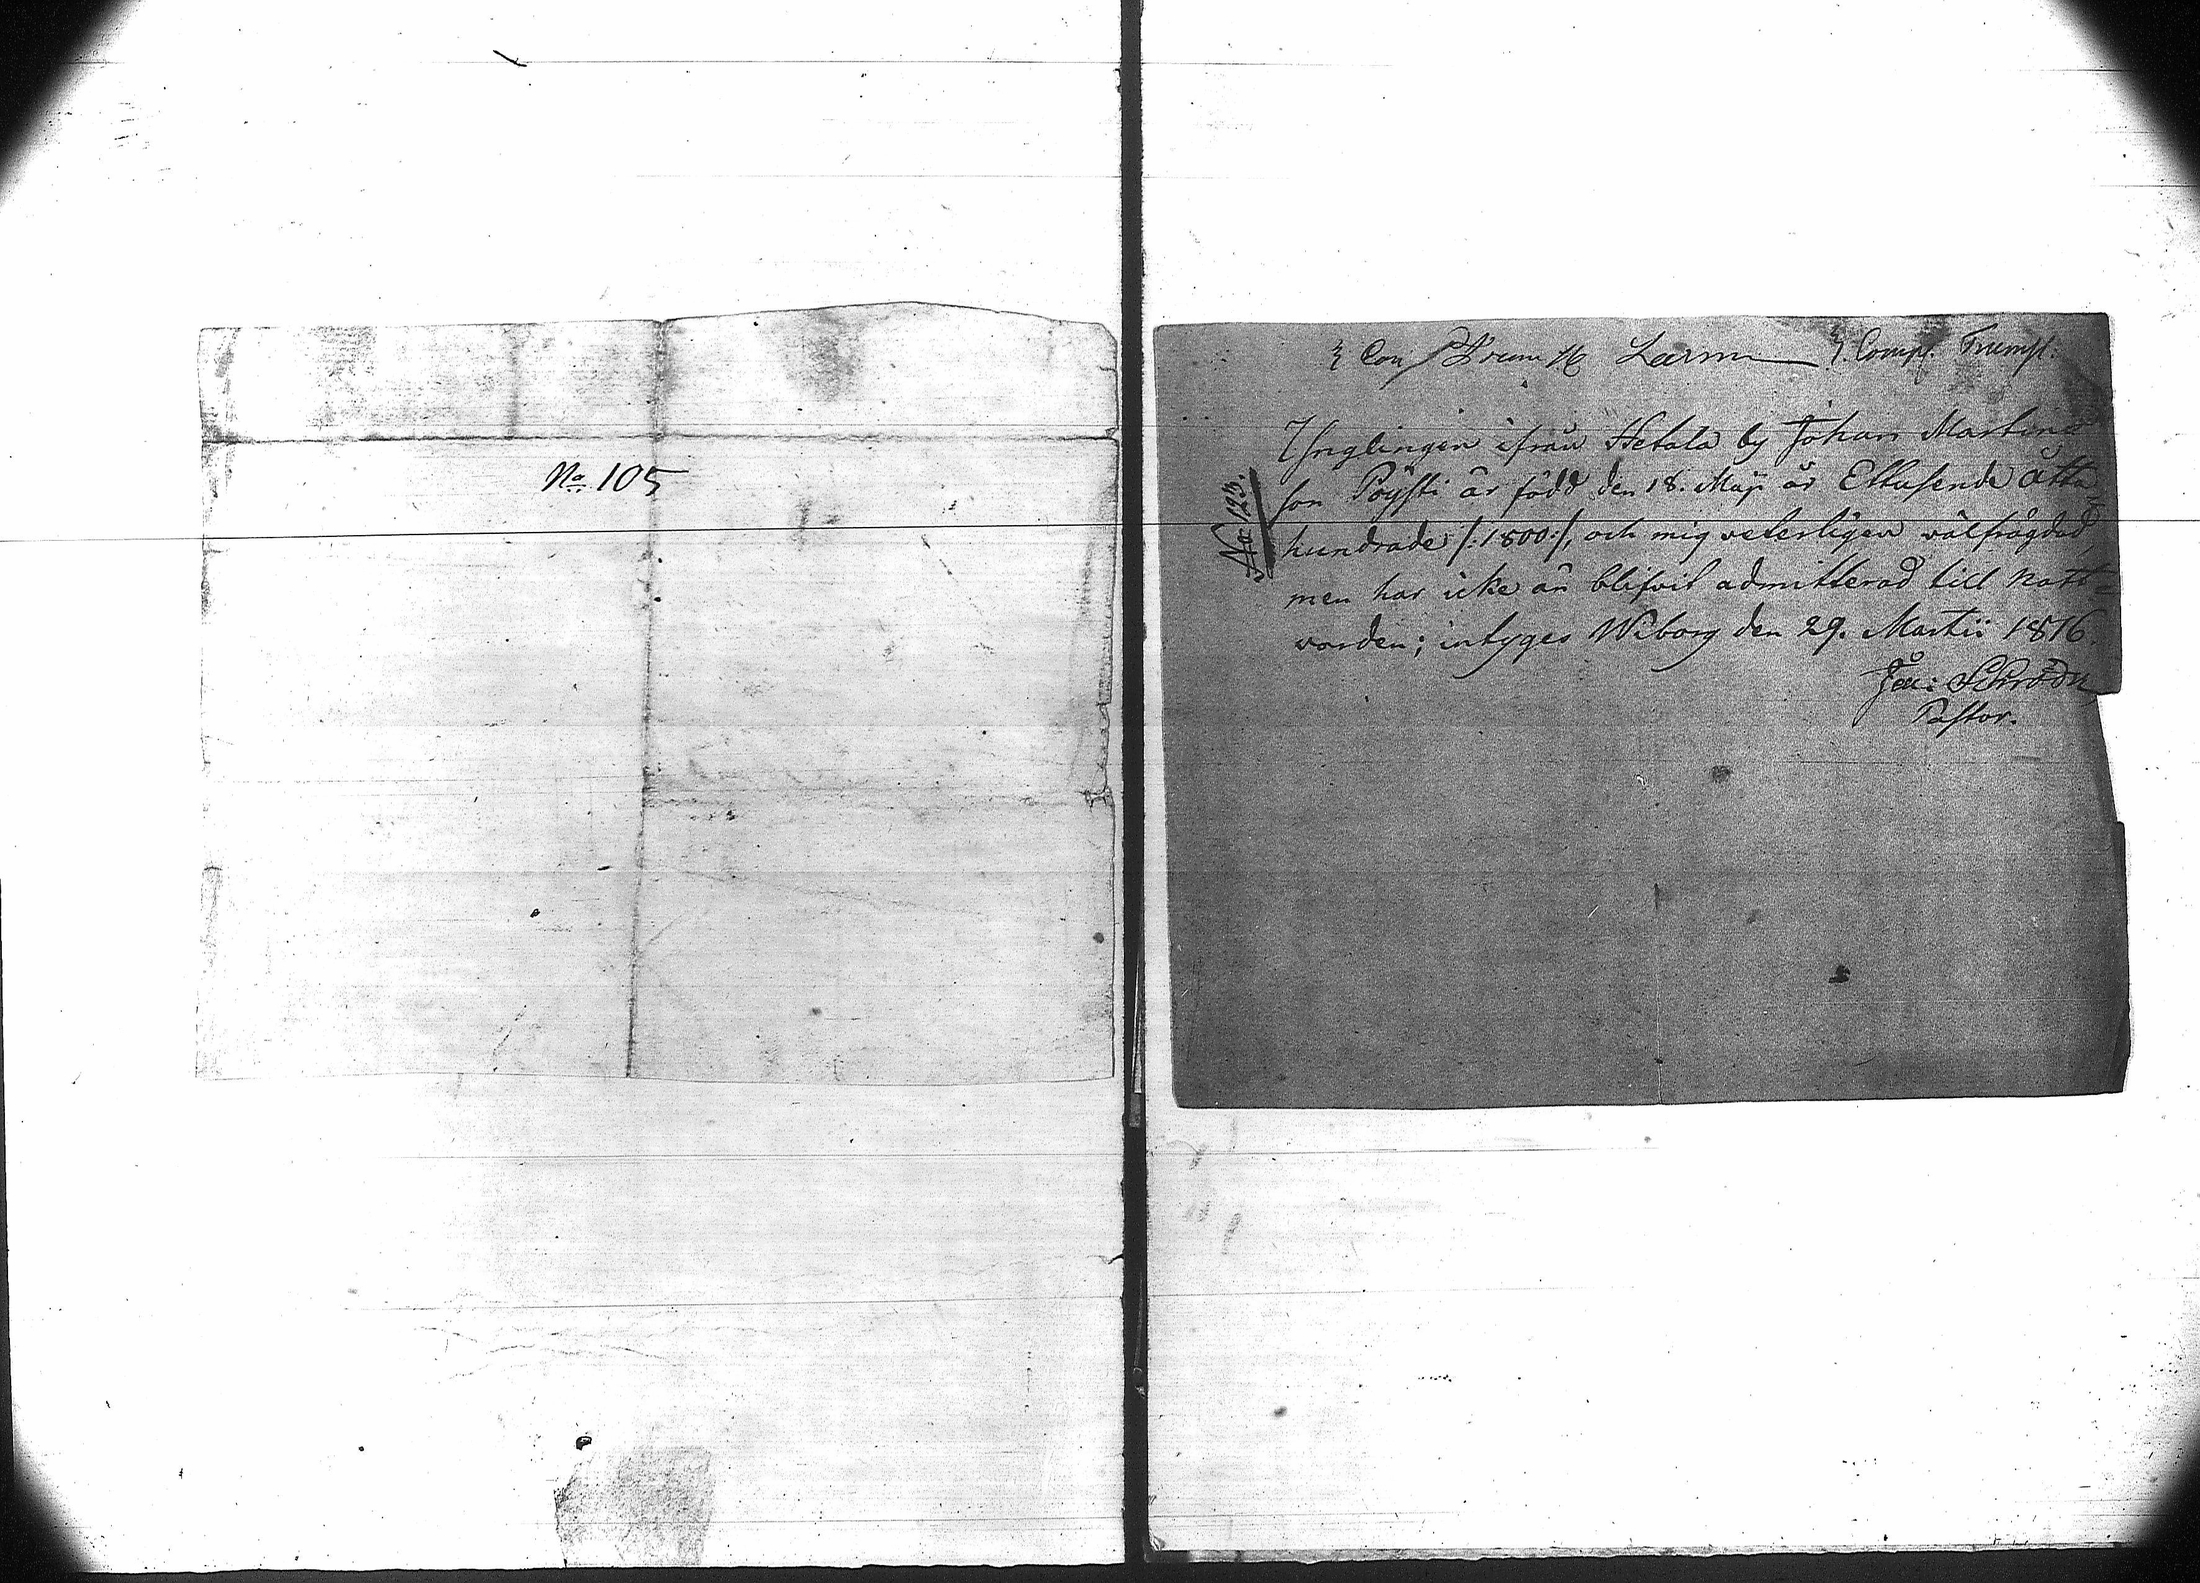 No. 105
No. 123.
Ynglingen ifrån Hetala by Johan Martins
son Pöysti är född den 18. Maji år Ettusende åtta
hundrade /:1800:/, och mig veterligen välfrägdad,
men har icke än blifvit admitterad till natt=
varden; intyges Wiborg den 29. Martii 1816.
Pastor.